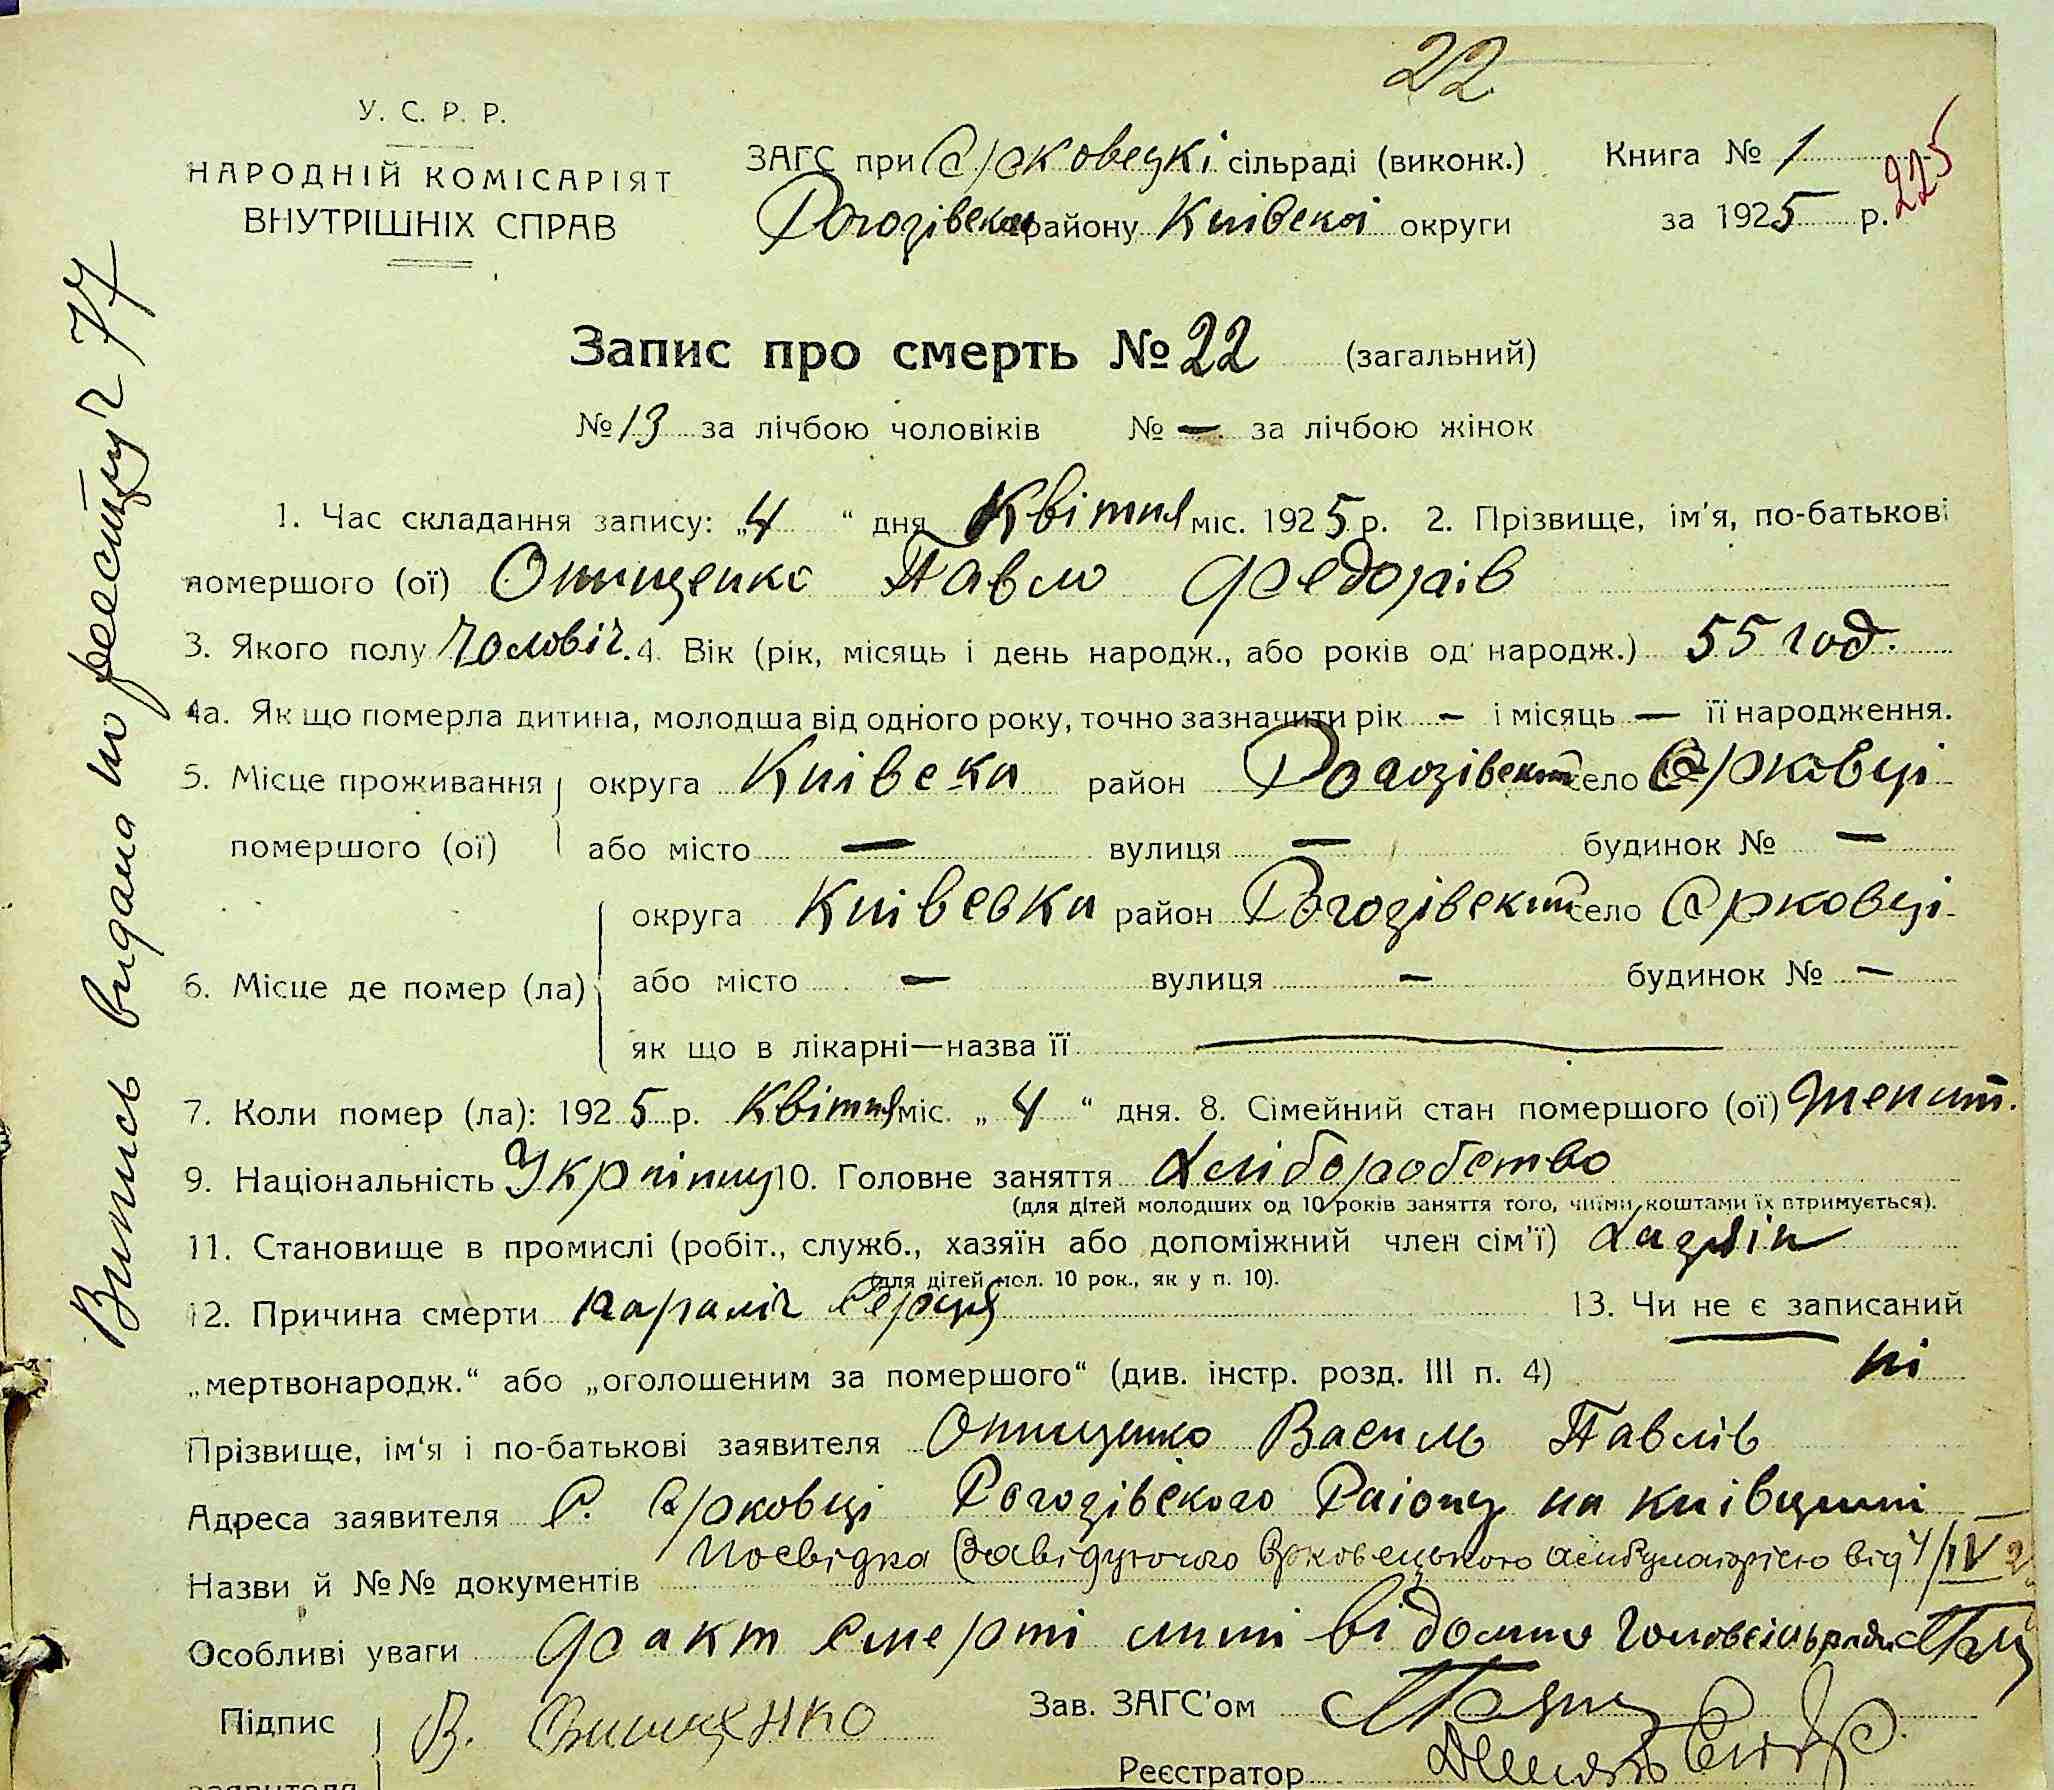 22
У. С. Р. Р.
НАРОДНІЙ КОМІСАРІЯТ
ВНУТРІШНІХ СПРАВ
ЗАГС при Єрковецкі сільраді (виконк.)
Рогозівском району Київскої округи
Книга № 1
за 1925 р.
225
Запис про смерть № 22 (загальний)
№ 13 за лічбою чоловіків № — за лічбою жінок
1. Час складання запису: „4“ дня Квітня міс. 1925 р. 2. Прізвище, ім'я, по-батькові
помершого (ої) Онищенко Павло Федорів
3. Якого полу Чоловіч. 4. Вік (рік, місяць і день народж., або років од народж.) 55 год.
4а. Як що померла дитина, молодша від одного року, точно зазначити рік – і місяць — її народження.
5. Місце проживання помершого (ої) округа Київска район Рогозівский село Єрковці
або місто — вулиця — будинок № —
6. Місце де помер (ла) округа Київська район Рогозівский село Єрковці
або місто — вулиця – будинок № –
як що в лікарні—назва її —
7. Коли помер (ла): 1925 р. Квітня міс. „4“ дня. 8. Сімейний стан помершого (ої) женат.
9. Національність Українец 10. Головне заняття Хліборобство
(для дітей молодших од 10 років заняття того, чиїми коштами їх втримується).
11. Становище в промислі (робіт., служб., хазяїн або допоміжний член сім'ї) Хазяін
(для дітей мол. 10 рок., як у п. 10).
12. Причина смерти параліч серця 13. Чи не є записаний
„мертвонародж.“ або „оголошеним за помершого“ (див. інстр. розд. III п. 4) ні
Прізвище, ім'я і по-батькові заявителя Онищенко Василь Павлів
Адреса заявителя С. Єрковці Рогозівского Раіону на Київщині
Назви й №№ документів Посвідка Завідуючого Єрковецькою амбулаторією від 4/IV 2
Особливі уваги факт смерті мині відомий Голова сільради
Підпис заявителя В. Онищенко
Зав. ЗАГС'ом
Реєстратор
Випись видана по реестру 77